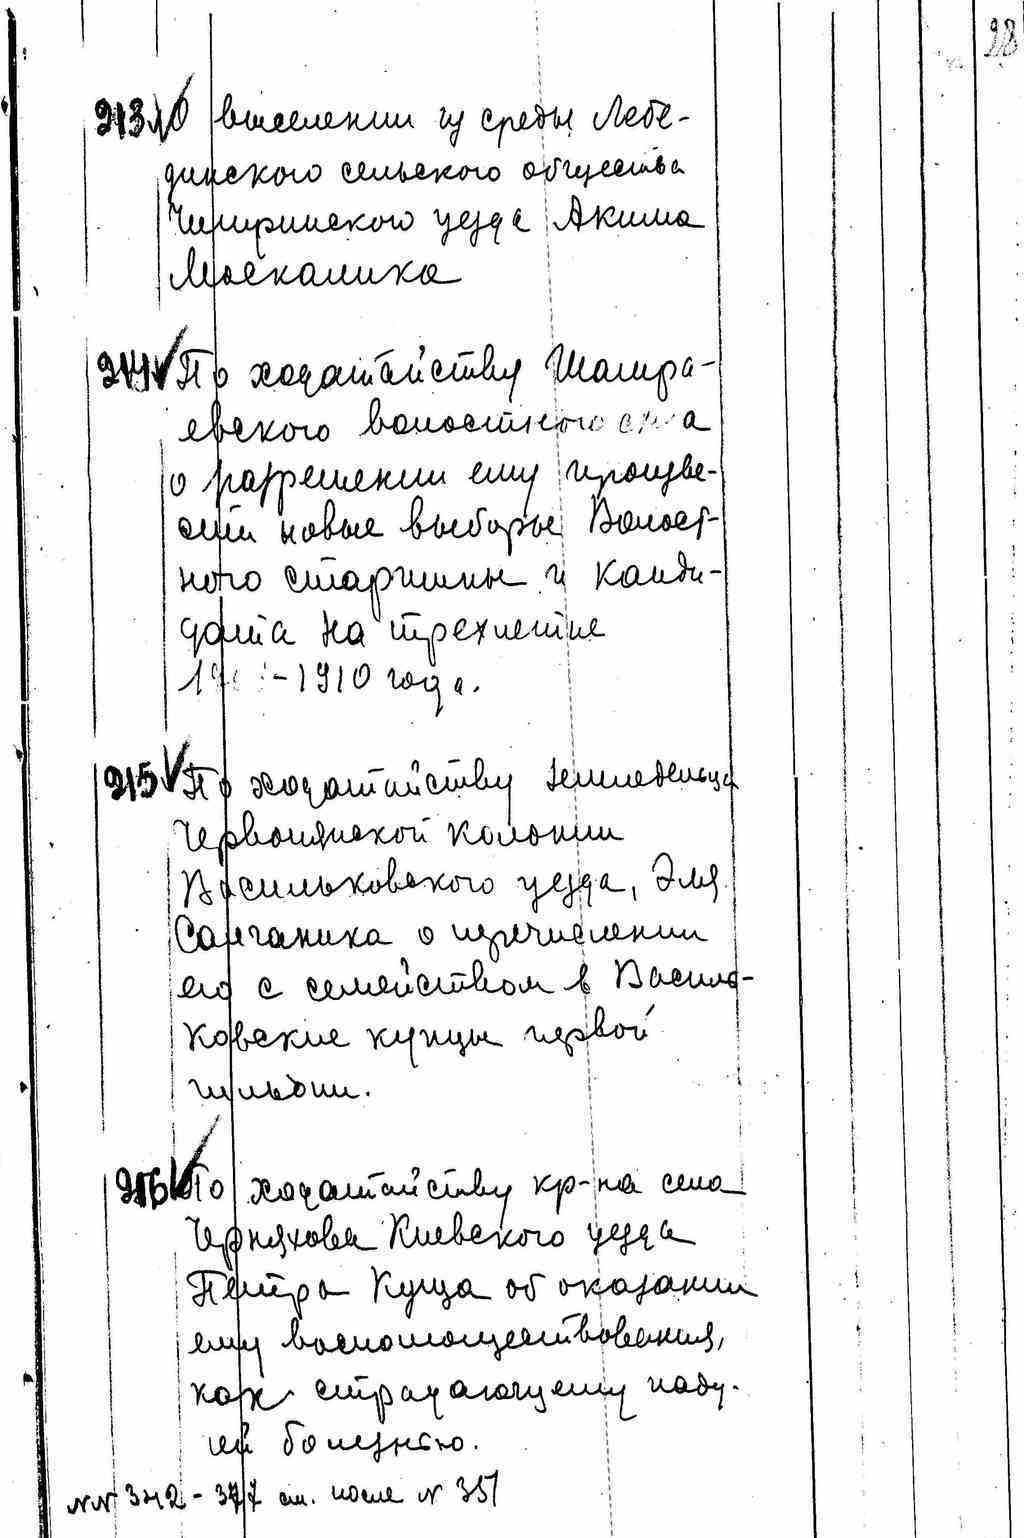 28
213. О выселении из среды Лебе-
динского сельского общества
Чигиринского уезда Акима
Москалика
214. По ходатайству Шамра-
евского волостного схода
о разрешении ему произве-
сти новые выборы Волост-
ного старшины и канди-
дата на трехлетие
-1910 года.
215 По ходатайству земледельца
Червонянской колонии
Васильковского уезда, Эля
Салганика о перечислении
его с семейством в Василь-
ковские купцы первой
гильдии.
216 По ходатайству кр-на села
Черняхова Киевского уезда
Петра Куца об оказании
ему воспомоществования,
как страдающему паду-
ей болезнью.
NN 342 - 377 см. после N 351